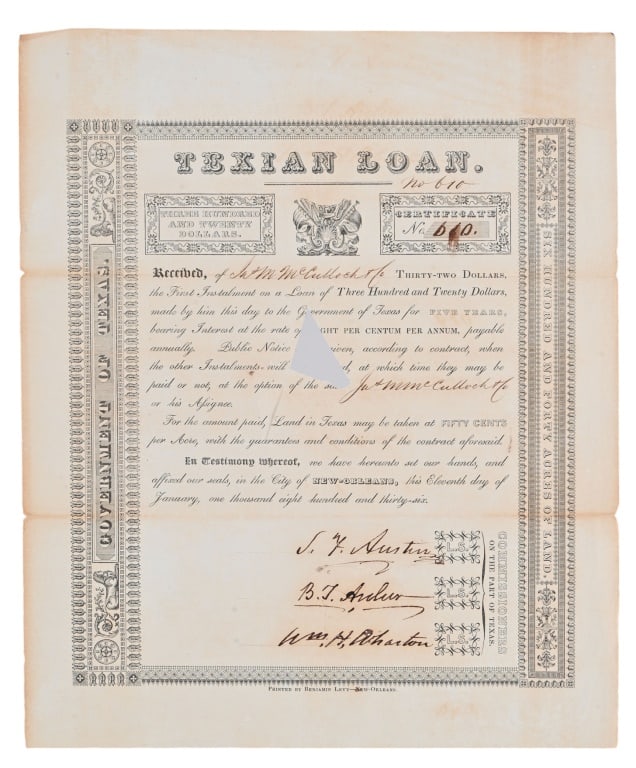 TEXIAN LOAN.
No 610
THREE HUNDRED
AND TWENTY
DOLLARS.
CERTIFICATE
No. 610.
Received, of Jas M McCulloch THIRTY-TWO DOLLARS,
the First Instalment on a Loan of Three Hundred and Twenty Dollars,
made by him this day to the Government of Texas for FIVE YEARS,
bearing Interest at the rate o IGHT PER CENTUM PER ANNUM, payable
annually. Public Notice given, according to contract, when
the other Instalments will d, at which time they may be
paid or not, at the option of the sa Jas M McCulloch
or his Assignee.
For the amount paid, Land in Texas may be taken at FIFTY CENTS
per Acre, with the guarantees and conditions of the contract aforesaid.
In Testimony whereof, we have hereunto set our hands, and
affixed our seals, in the City of NEW-ORLEANS, this Eleventh day of
January, one thousand eight hundred and thirty-six.
S. F. Austin L.S.
B. T. Archer L.S.
Wm. H. Wharton L.S.
COMMISSIONERS
ON THE PART OF TEXAS.
GOVERNMENT OF TEXAS.
SIX HUNDRED AND FORTY ACRES OF LAND.
PRINTED BY BENJAMIN LEVY—NEW-ORLEANS.